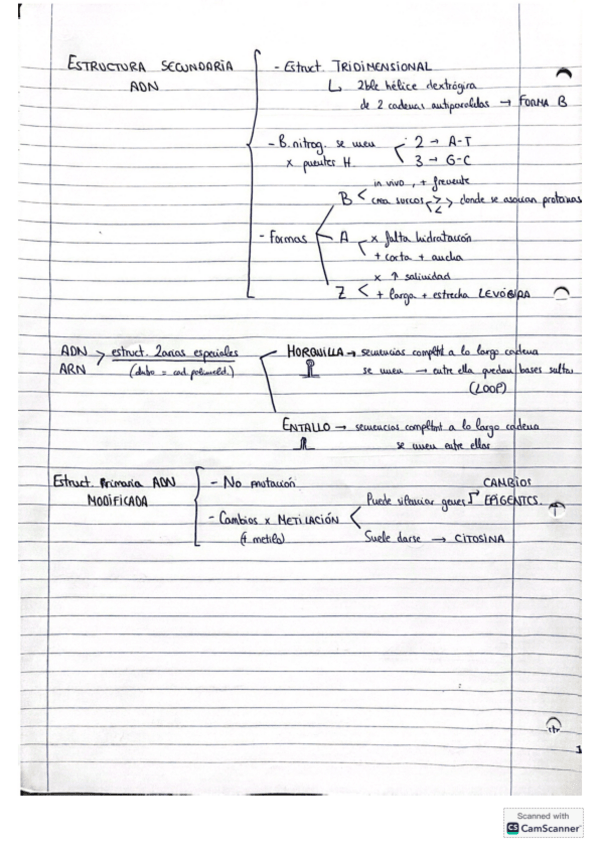 ESTRUCTURA SECUNDARIA
ADN
- Estruct. TRIDIMENSIONAL
↳ 2ble hélice dextrógira
de 2 cadenas antiparalelas → FORMA B
- B. nitrog. se unen
x puentes H.
2 → A-T
3 → G-C
- Formas
B < in vivo, + frecuente
crea surcos donde se asocian proteínas
A
x falta hidratación
+ corta + ancha
Z <
x ↑ salinidad
+ larga + estrecha LEVÓGIRA
ADN
ARN
> estruct. 2arias especiales
HORQUILLA → secuencias complemt a lo largo cadena
se unen → entre ella quedan bases sueltas
(LOOP)
ENTALLO → secuencias complemt a lo largo cadena
se unen entre ellas
Estruct. Primaria ADN
MODIFICADA
- No mutación
- Cambios x METILACIÓN
(+ metilo)
Puede silenciar genes
CAMBIOS
EPIGENTCS.
Suele darse → CITOSINA
1
Scanned with
CS CamScanner